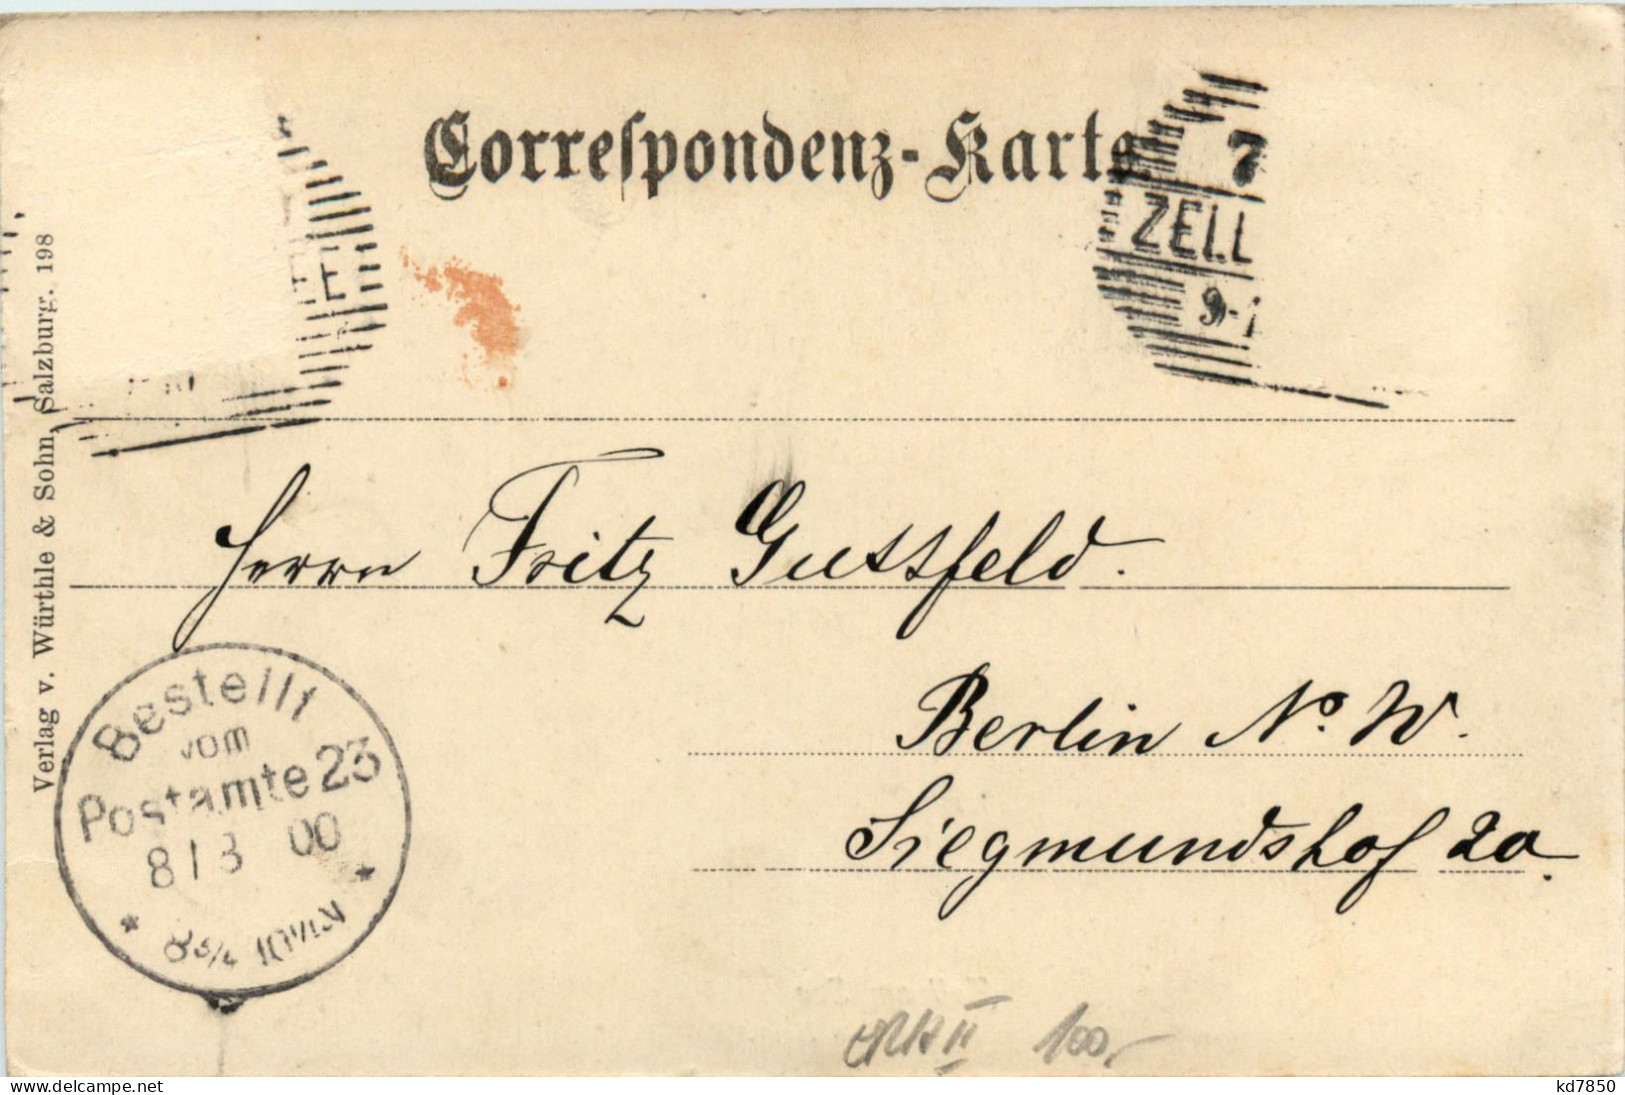 Correspondenz-Karte
7
ZELL
9-1
Verlag v. Würthle & Sohn, Salzburg. 198
Herrn Fritz Gutsfeld.
Berlin N.º W.
Siegmundshof 2a.
Bestellt
vom
Postamte 23
8/3 00
8¾ 10½V
100,-
delcampe.net
kd7850